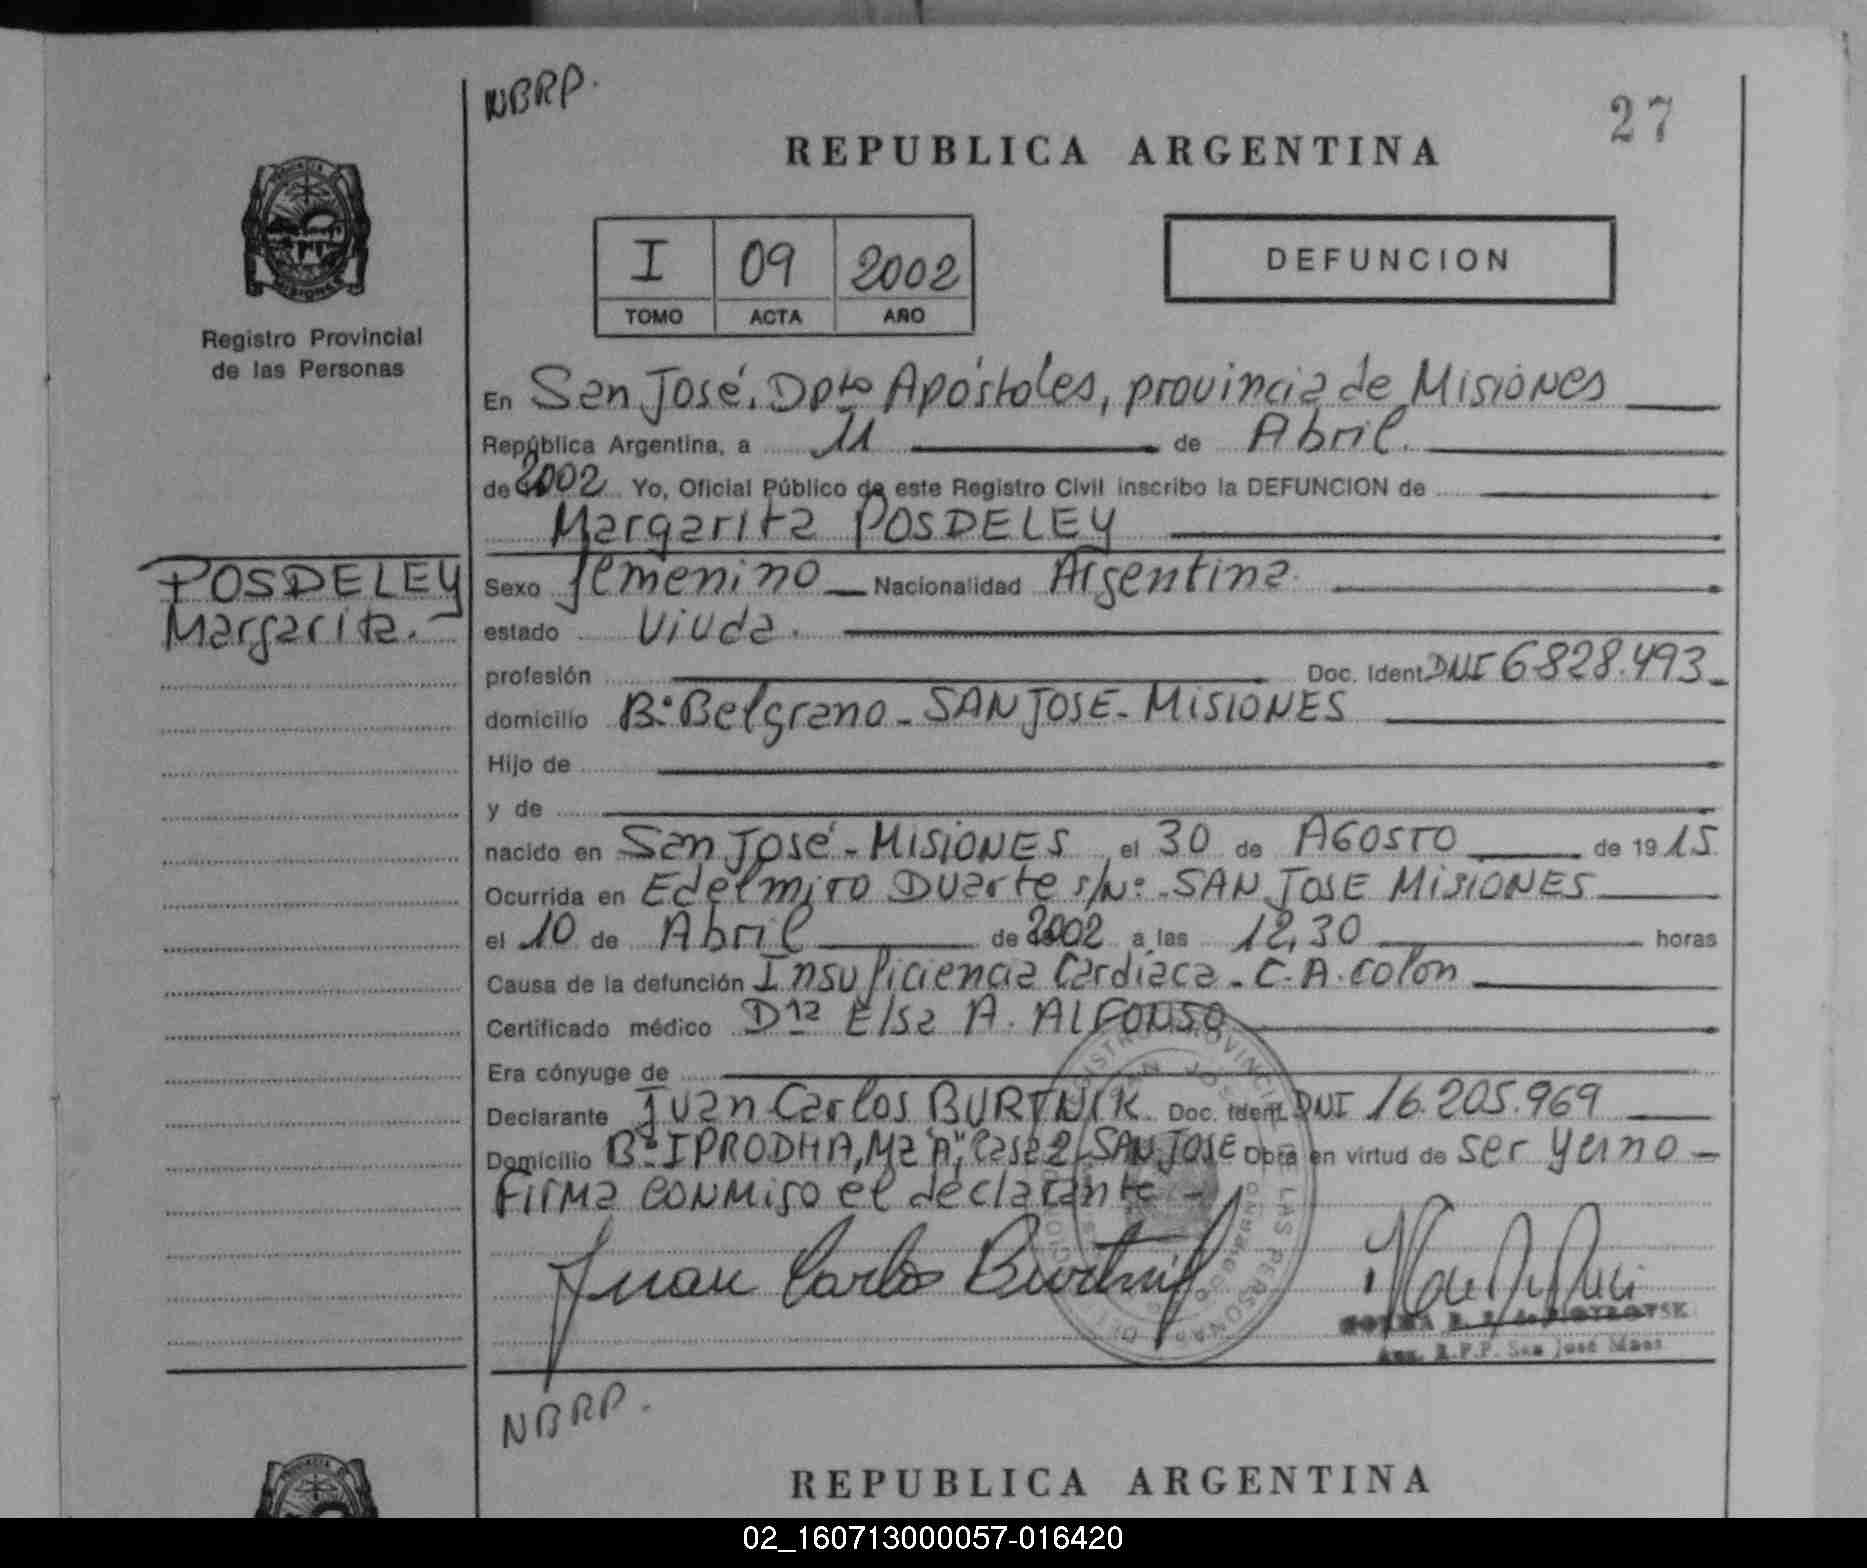 NBRP.
27
REPUBLICA ARGENTINA
I 09 2002
TOMO ACTA AÑO
DEFUNCION
Registro Provincial
de las Personas
En San José. Dpto Apóstoles, provincia de Misiones
República Argentina, a 11 de Abril.
de 2002 Yo, Oficial Público de este Registro Civil inscribo la DEFUNCION de
Margarita POSDELEY
POSDELEY
Margarita.
Sexo femenino Nacionalidad Argentina.
estado Viuda.
profesión Doc. Ident. DNI 6828.493
domicilio B° Belgrano - SAN JOSE - MISIONES
Hijo de
y de
nacido en San José - MISIONES, el 30 de AGOSTO de 1915
Ocurrida en Edelmiro Duarte s/N° - SAN JOSE MISIONES
el 10 de Abril de 2002 a las 12,30 horas
Causa de la defunción Insuficiencia Cardiaca - C.A. colon
Certificado médico Dra Elsa A. ALFONSO
Era cónyuge de
Declarante Juan Carlos BURTNIK Doc. Ident. DNI 16.205.969
Domicilio B° IPRODHA, Mz "A", Casa 2, SAN JOSE Obra en virtud de ser yerno -
Firma conmigo el declarante -
Juan Carlos Burtnik
San José Mnes.
NBRP.
REPUBLICA ARGENTINA
02_160713000057-016420